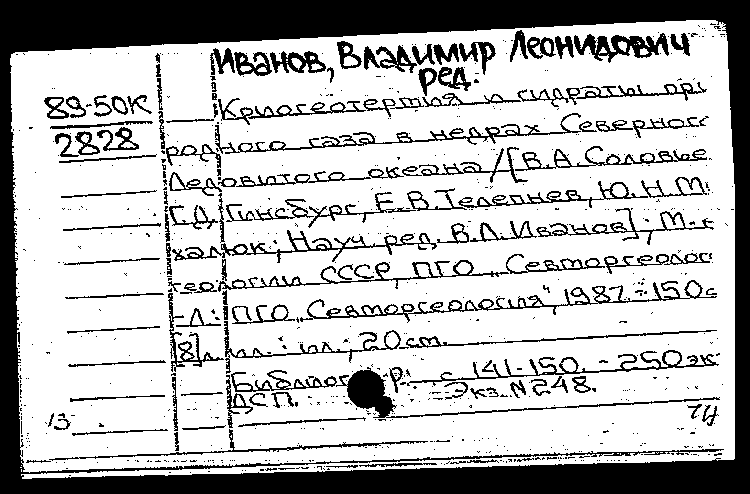 Иванов, Владимир Леонидович
ред.
89-50К
2828
Криогеотермия и гидраты при
родного газа в недрах Северног
Ледовитого океана / [В.А. Соловье
Г.Д. Гинсбург, Е.В. Телепнев, Ю.Н. Ми
халюк; Науч. ред. В.Л. Иванов]; М-в
геологии СССР, ПГО „Севморгеолог
-Л.: ПГО „Севморгеология", 1987.-150с
[8]л. ил. : ил.; 20 см.
Библиогр.: с 141-150. - 250 эк
ДСП. Экз. N 248.
13